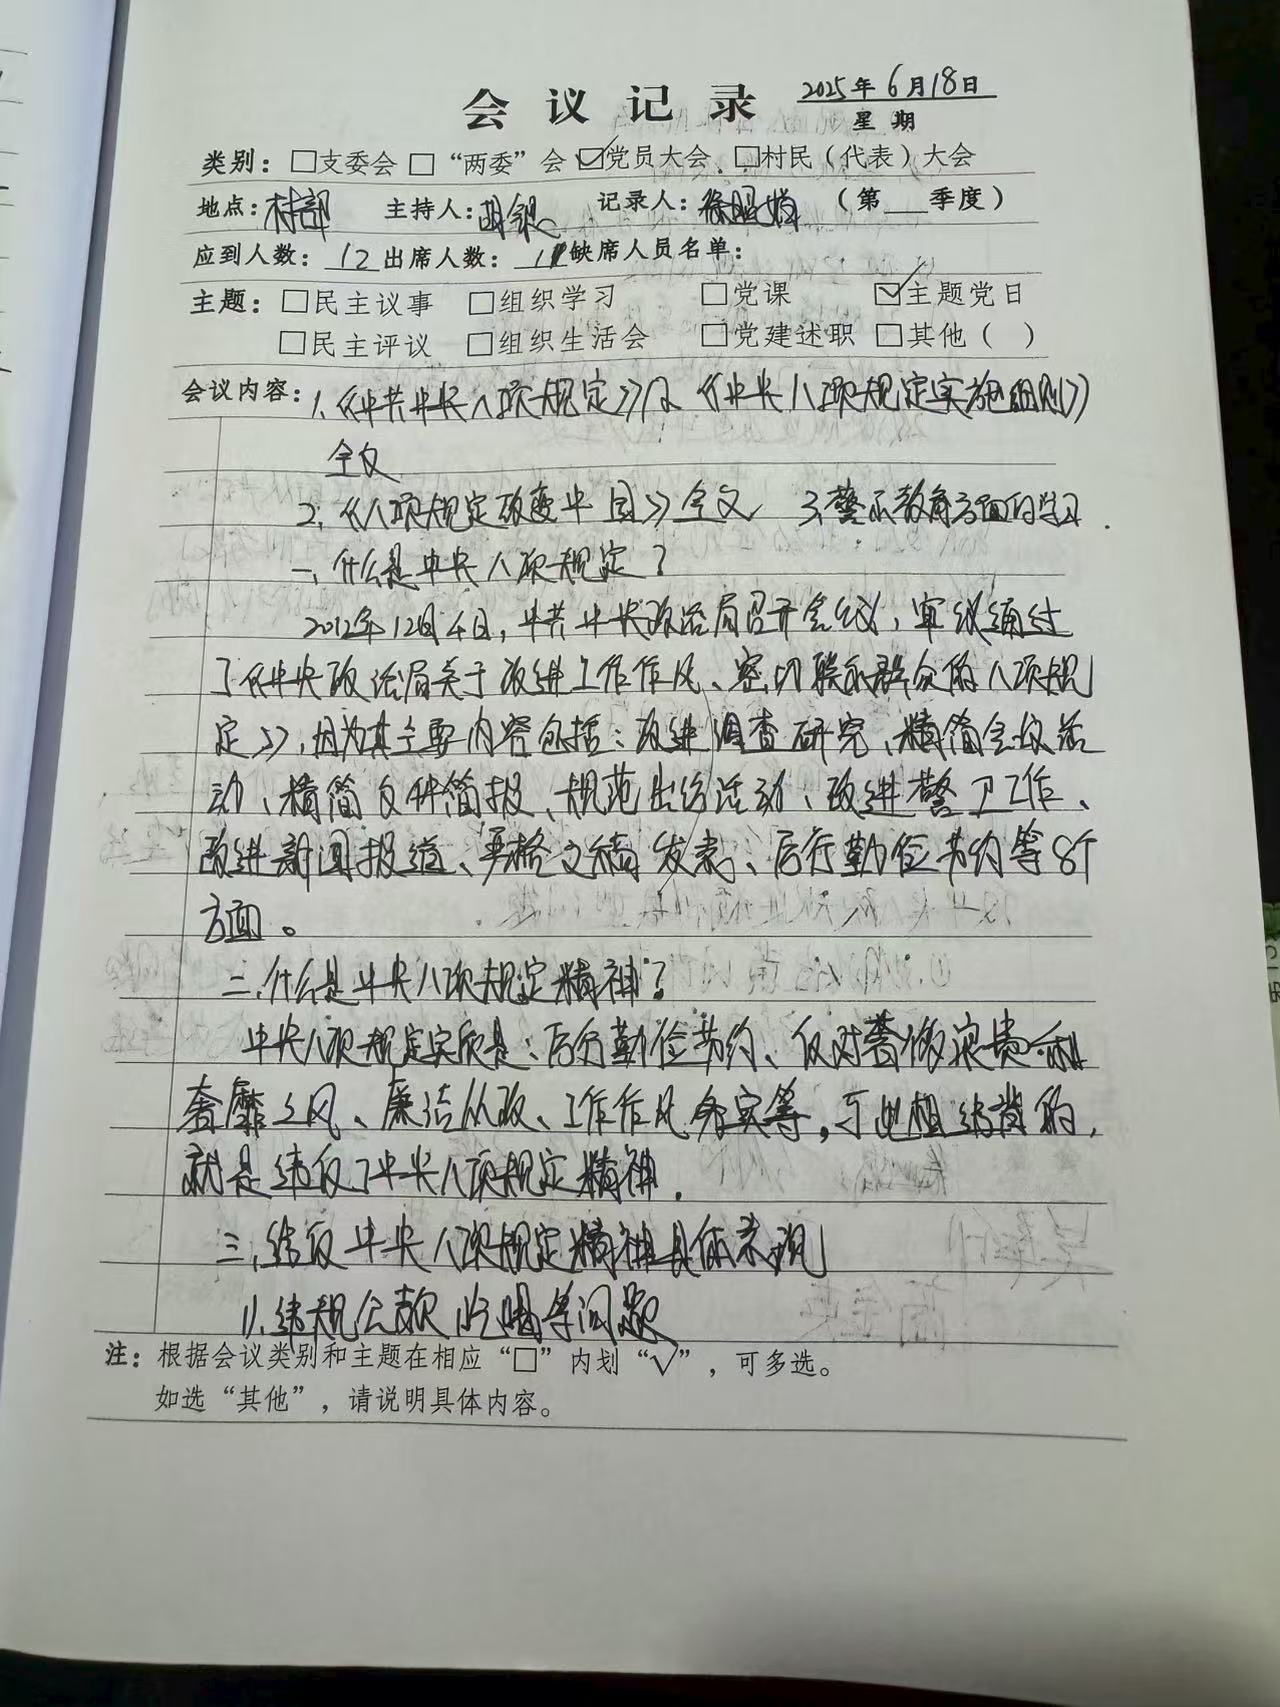 会议记录 2025年6月18日
星期
类别：□支委会 □“两委”会 ☑党员大会 □村民（代表）大会
地点：村部 主持人： 记录人：徐 （第 季度）
应到人数：12 出席人数：11 缺席人员名单：
主题：□民主议事 □组织学习 □党课 ☑主题党日
□民主评议 □组织生活会 □党建述职 □其他（ ）
会议内容：1、《中共中央八项规定》及《中央八项规定实施细则》
全文
2、《八项规定改变中国》全文 3、警示教育方面的学习.
一、什么是中央八项规定？
2012年12月4日，中共中央政治局召开会议，审议通过
了《中央政治局关于改进工作作风、密切联系群众的八项规
定》，因为其主要内容包括：改进调查研究、精简会议活
动、精简文件简报、规范出访活动、改进警卫工作、
改进新闻报道、严格文稿发表、厉行勤俭节约等8个
方面。
二、什么是中央八项规定精神？
中央八项规定实质是：厉行勤俭节约、反对奢侈浪费和
奢靡之风、廉洁从政、工作作风务实等，与此相结背的，
就是违反了中央八项规定精神.
三、违反中央八项规定精神具体表现
1）、违规公款吃喝等问题
注：根据会议类别和主题在相应“□”内划“√”，可多选。
如选“其他”，请说明具体内容。